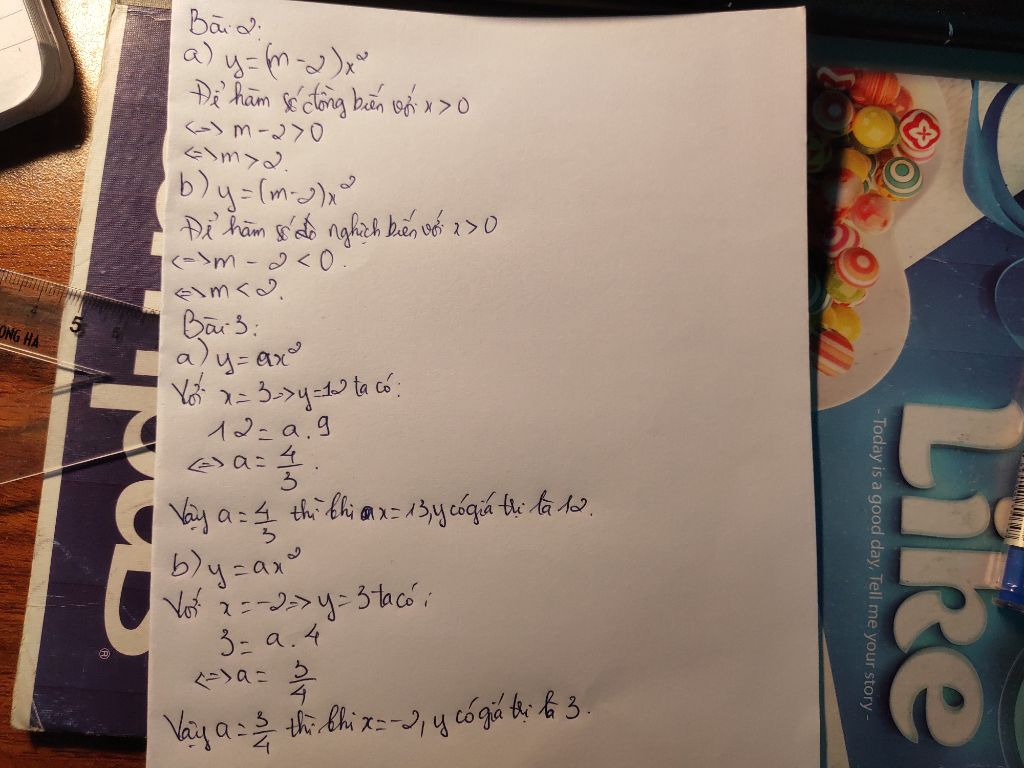 Bài 2:
a) y=(m-2)x²
Để hàm số đồng biến với x>0
<=> m-2>0
<=> m>2.
b) y=(m-2)x²
Để hàm số đồ nghịch biến với x>0
<=> m - 2 < 0.
<=> m < 2.
Bài 3:
a) y = ax²
Với x = 3 => y=12 ta có:
12 = a.9
<=> a = 4/3.
Vậy a = 4/3 thì khi x=13, y có giá trị là 12.
b) y = ax²
Với x = -2 => y = 3 ta có:
3 = a.4
<=> a = 3/4
Vậy a = 3/4 thì khi x = -2, y có giá trị là 3.
ONG HA
4 5 6
®
LiKE
- Today is a good day, Tell me your story -